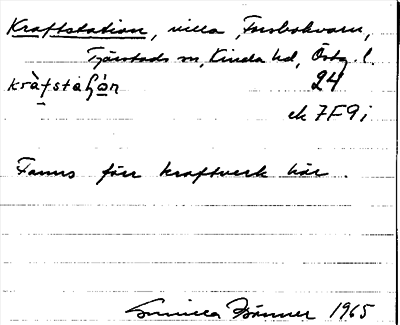 Kraftstation, villa, Forsbokvarn,
Tjärstads sn, Kinda hd, Östg. l.
24
ek 7F9i
Fanns förr kraftverk här.
Gunilla Brönner 1965